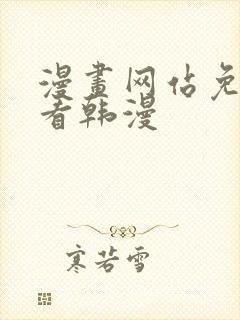 漫畫网佔免
看韩漫
寒若雪